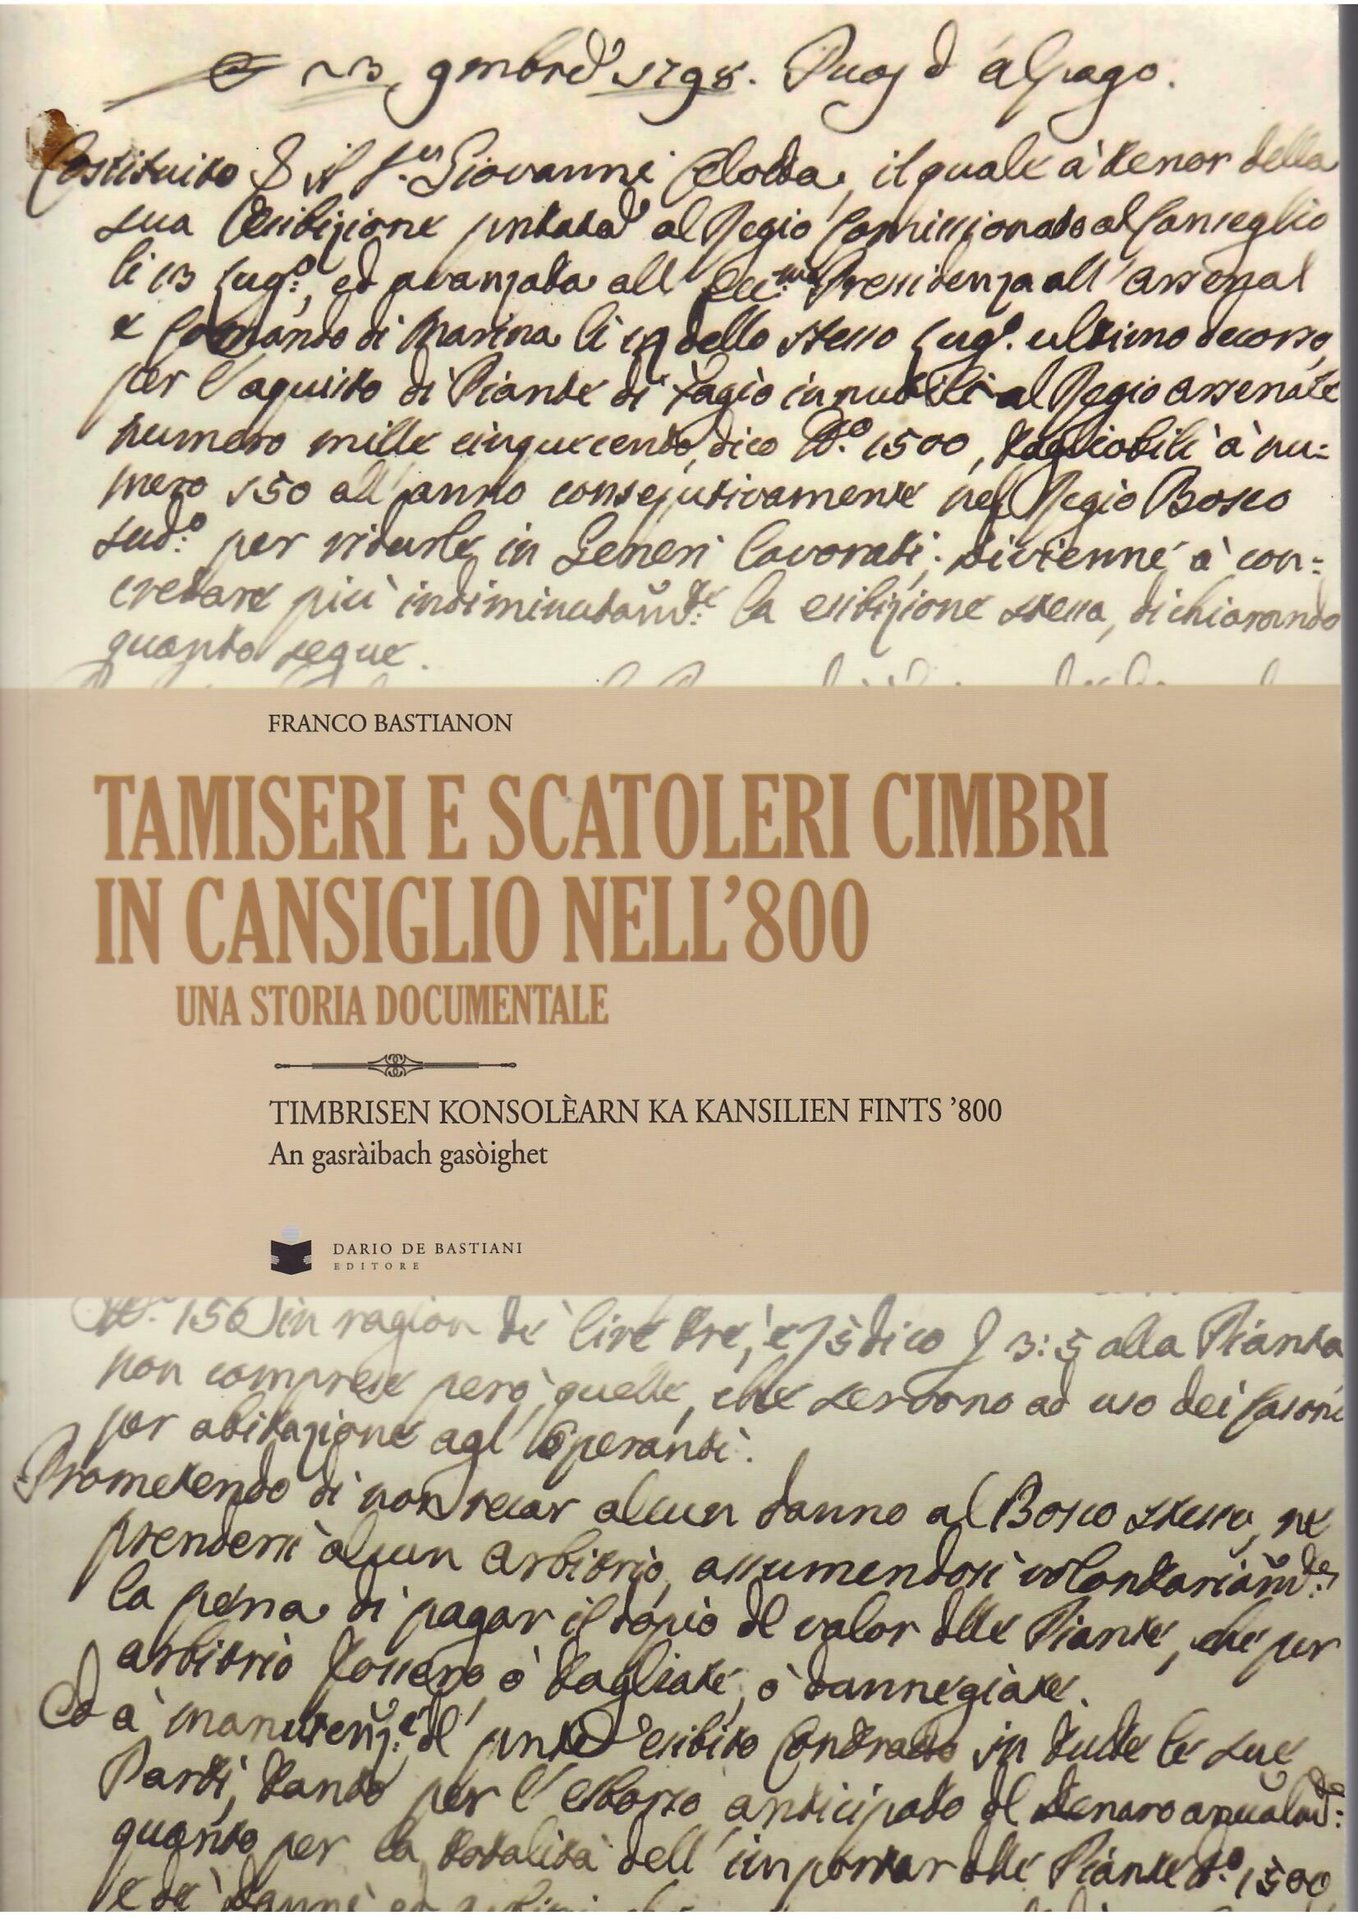 23 9mbre 1798. Puos d'alpago.
Costituito il Sr. Giovanni, il quale à tenor della
sua Esibizione al Regio Commissionato al Canseglio
li 13 Lugo:, ed avanzata all' Ecc:ma Pressidenza all' arsenal
e Comando di Marina li 19 dello stesso Lugo. ultimo decorso,
per l'aquisto di Piante di Fagio innutili al Regio arsenale
numero mille cinquecento, dico No. 1500, tagliabili à nu=
mero 150 all'anno consequtivamente nel Regio Bosco
sudo: per ridurle in Generi lavorati; divienne à con=
cretare più la esibizione stessa, dichiarando
quanto segue.
FRANCO BASTIANON
TAMISERI E SCATOLERI CIMBRI
IN CANSIGLIO NELL'800
UNA STORIA DOCUMENTALE
TIMBRISEN KONSOLÈARN KA KANSILIEN FINTS '800
An gasràibach gasòighet
DARIO DE BASTIANI
EDITORE
No. 150 in ragion di lire tre, e dico 3:5 alla Pianta
non comprese però quelle, che servono ad uso dei Casoni
per abitazione agl' Operanti.
Prometendo di non recar alcun danno al Bosco stesso, ne
prendersi alcun arbitrio, assumendosi volontariamte:
la pena di pagar il dopio del valor delle Piante, che per
arbitrio fossero, ò tagliate, ò dannegiate.
Ed à esibito Contratto in tutte le sue
Parti, tanto per l'esborso anticipato del denaro
quanto per la totalità dell' importar delle Piante No. 1500